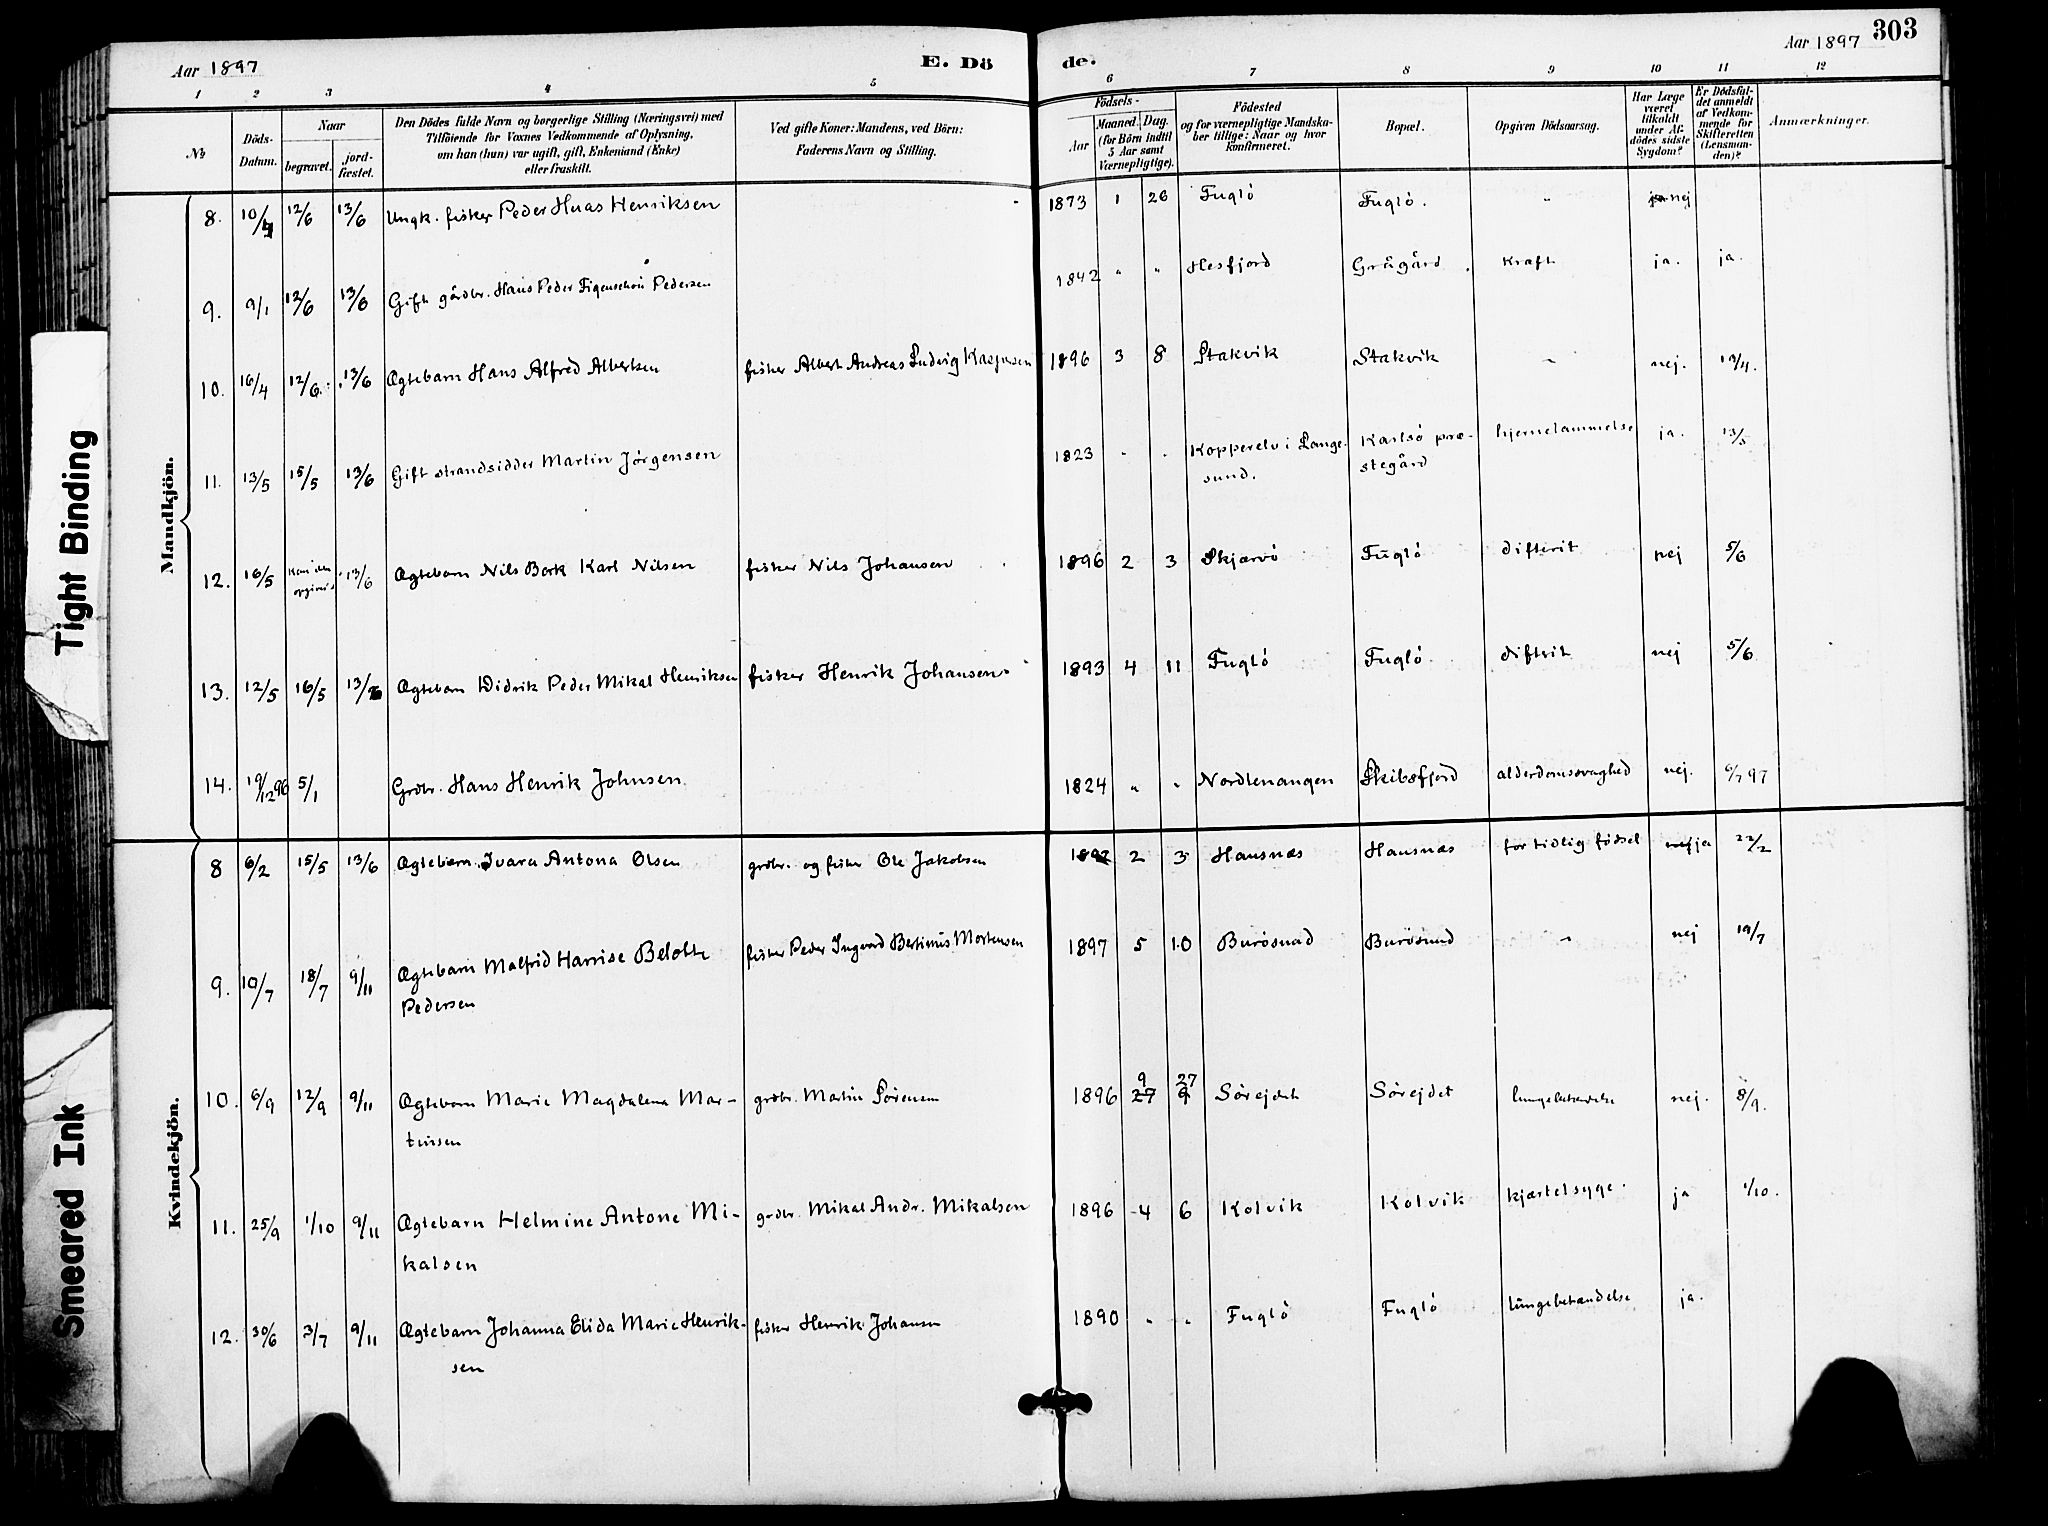 303
Aar 1897 E. Dö de. Aar 1897
1 2 3 4 5 6 7 8 9 10 11 12
No
Döds-
Datum.
Naar
begravet.
jord-
fæstet.
Den Dödes fulde Navn og borgerlige Stilling (Næringsvei) med
Tilföiende for Voxnes Vedkommende af Oplysning,
om han (hun) var ugift, gift, Enkemand (Enke)
eller fraskilt.
Ved gifte Koner: Mandens, ved Börn:
Faderens Navn og Stilling.
Födsels-
Aar
Maaned. Dag.
(for Börn indtil
5 Aar samt
Værnepligtige).
Födested
og for værnepligtige Mandska-
ber tillige: Naar og hvor
konfirmeret.
Bopæl.
Opgiven Dödsaarsag.
Har Læge
været
tilkaldt
under Af-
dödes sidste
Sygdom?
Er Dödsfal-
det anmeldt
af Vedkom-
mende for
Skifteretten
(Lensman-
den)?
Anmærkninger.
Mandkjön.
8. 10/4 12/6 13/6 Ungk. fisker Peder Huas Henriksen 1873 1 26 Fuglö Fuglö. " ja nej
9. 9/1 12/6 13/6 Gift gårdbr. Hans Peder Figenschou Pedersen 1842 " " Hesfjord Grågård kraft ja. ja.
10. 16/4 12/6. 13/6 Ægtebarn Hans Alfred Albertsen fisker Albert Andreas Ludvig Kaspersen 1896 3 8 Stakvik Stakvik " nej. 19/4.
11. 13/5 15/5 13/6 Gift strandsidder Martin Jörgensen 1823 " " Kopperelv i Lange-
sund. Karlsö præ-
stegård hjernelammelse ja. 13/5
12. 16/5 13/6 Ægtebarn Nils Berk Karl Nilsen fisker Nils Johansen 1896 2 3 Skjærvö Fuglö difterit nej 5/6
13. 12/5 16/5 13/6 Ægtebarn Didrik Peder Mikal Henriksen fisker Henrik Johansen 1893 4 11 Fuglö Fuglö diftrit nej 5/6
14. 19/12 96 5/1 Grdbr. Hans Henrik Johnsen 1824 " " Nordlenangen Skibsfjord alderdomssvaghed nej. 6/7 97
Kvindekjön.
8 6/2 15/5 13/6 Ægtebarn Ivara Antona Olsen grdbr. og fisker Ole Jakobsen 1897 2 3 Hansnæs Hansnæs for tidlig födsel nej ja 22/2
9. 10/7 18/7 9/11 Ægtebarn Malfrid Harrise Belotte
Pedersen fisker Peder Ingvard Bertinus Mortensen 1897 5 10 Burösund Burösund " nej 19/7
10. 6/9 12/9 9/11 Ægtebarn Marie Magdalena Mar-
tinsen grdbr. Martin Sörensen 1896 9 27 27 9 Sörejdet Sörejdet lungebetændelse nej. 8/9.
11. 25/9 1/10 9/11 Ægtebarn Helmine Antone Mi-
kalsen grdbr. Mikal Andr. Mikalsen 1896 4 6 Kolvik Kolvik kjærtelsyge. ja 1/10.
12. 30/6 3/7 9/11 Ægtebarn Johanna Elida Marie Henrik-
sen fisker Henrik Johansen 1890 " " Fuglö Fuglö lungebetændelse ja.
Tight Binding
Smeared Ink